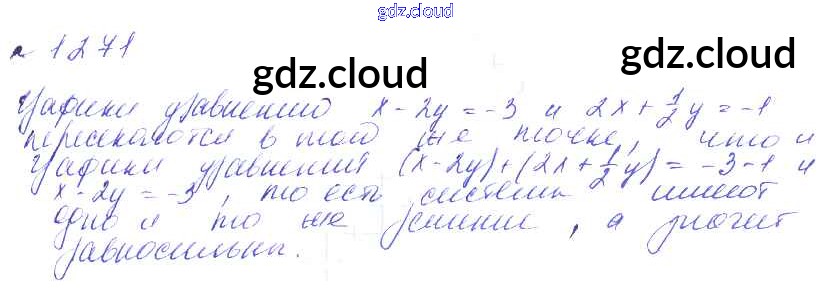 gdz.cloud
№ 1271
gdz.cloud
gdz.cloud
Графики уравнений x - 2y = -3 и 2x + 1/2 y = -1
пересекаются в той же точке, что и
графики уравнения (x - 2y) + (2x + 1/2 y) = -3 - 1 и
x - 2y = -3, то есть системы имеют
одно и то же решение, а значит
равносильны.